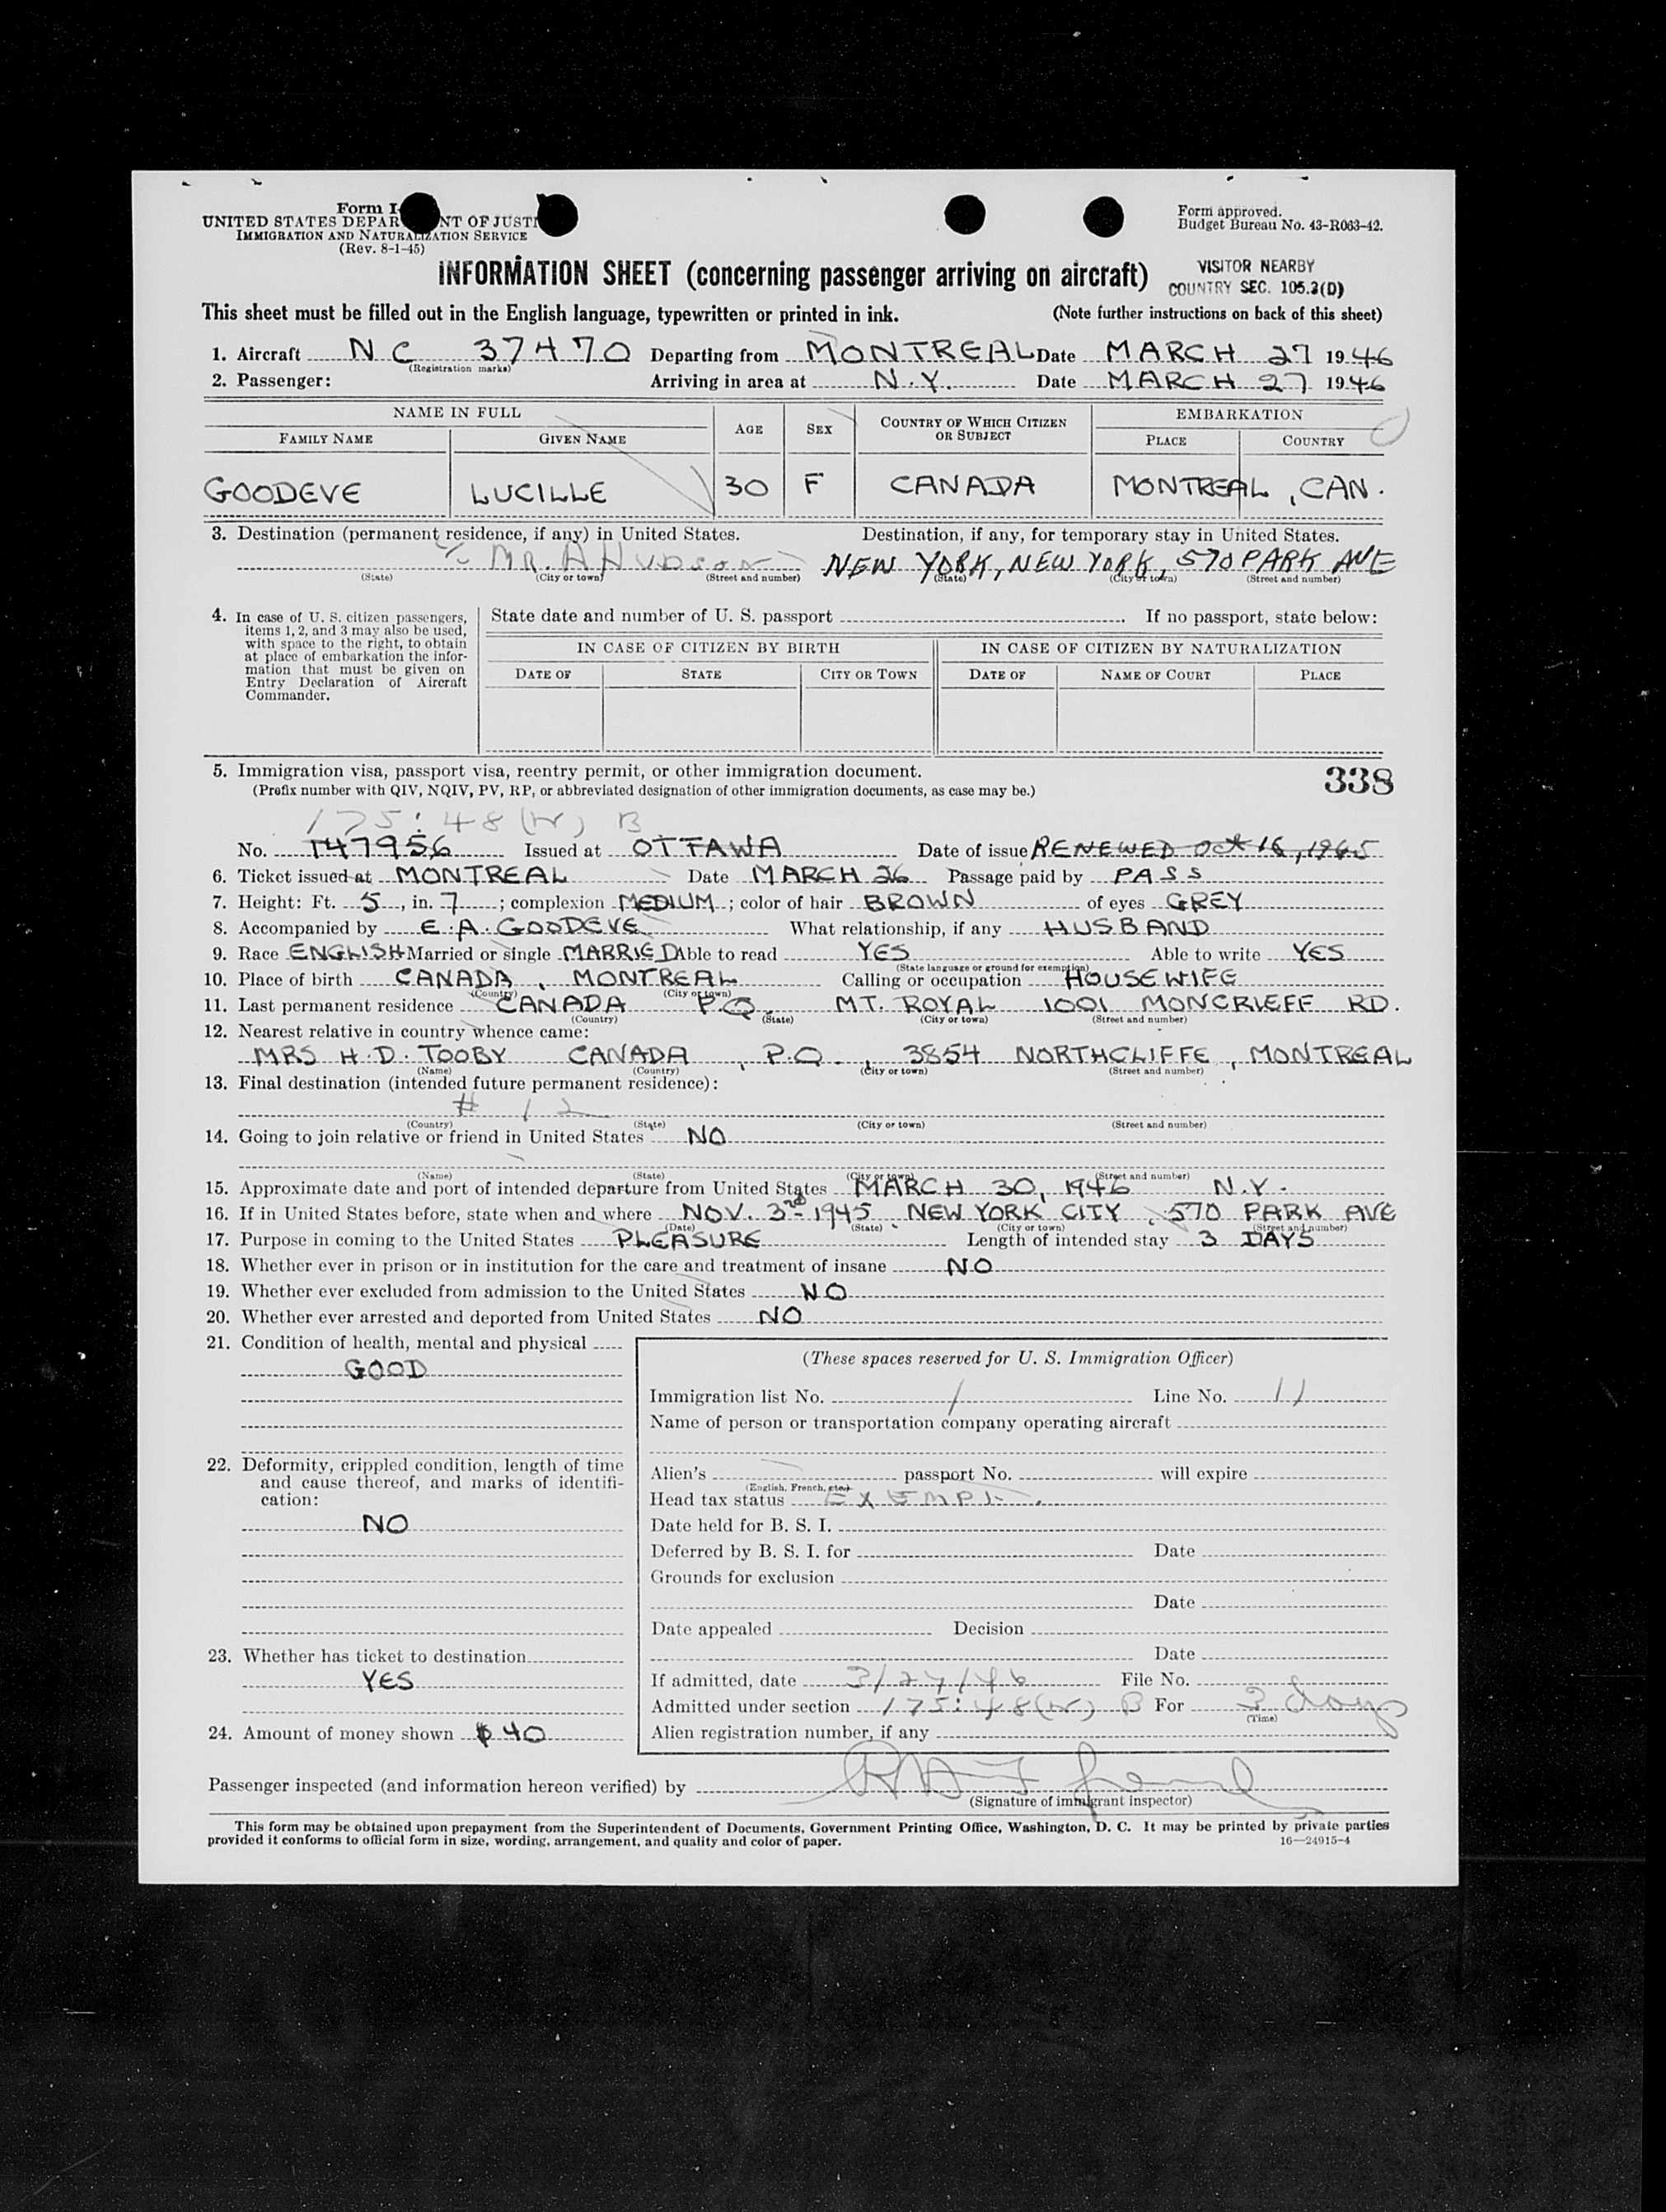 Form I-
UNITED STATES DEPAR NT OF JUSTI
IMMIGRATION AND NATURALIZATION SERVICE
(Rev. 8-1-45)
Form approved.
Budget Bureau No. 43-R063-42.
INFORMATION SHEET (concerning passenger arriving on aircraft)
VISITOR NEARBY
COUNTRY SEC. 105.3(D)
This sheet must be filled out in the English language, typewritten or printed in ink. (Note further instructions on back of this sheet)
1. Aircraft NC 37470 Departing from MONTREAL Date MARCH 27 1946
(Registration marks)
2. Passenger: Arriving in area at N.Y. Date MARCH 27 1946
NAME IN FULL AGE SEX COUNTRY OF WHICH CITIZEN OR SUBJECT EMBARKATION
FAMILY NAME GIVEN NAME PLACE COUNTRY
GOODEVE LUCILLE 30 F CANADA MONTREAL, CAN.
3. Destination (permanent residence, if any) in United States. Destination, if any, for temporary stay in United States.
c/o MR. A HUDSON NEW YORK, NEW YORK, 570 PARK AVE
(State) (City or town) (Street and number) (State) (City or town) (Street and number)
4. In case of U. S. citizen passengers, items 1, 2, and 3 may also be used, with space to the right, to obtain at place of embarkation the information that must be given on Entry Declaration of Aircraft Commander.
State date and number of U. S. passport If no passport, state below:
IN CASE OF CITIZEN BY BIRTH IN CASE OF CITIZEN BY NATURALIZATION
DATE OF STATE CITY OR TOWN DATE OF NAME OF COURT PLACE
5. Immigration visa, passport visa, reentry permit, or other immigration document. 338
(Prefix number with QIV, NQIV, PV, RP, or abbreviated designation of other immigration documents, as case may be.)
175:48 B
No. 147956 Issued at OTTAWA Date of issue RENEWED Oct 16, 1945
6. Ticket issued at MONTREAL Date MARCH 26 Passage paid by PASS
7. Height: Ft. 5, in. 7; complexion MEDIUM; color of hair BROWN of eyes GREY
8. Accompanied by E.A. GOODEVE What relationship, if any HUSBAND
9. Race ENGLISH Married or single MARRIED Able to read YES Able to write YES
(State language or ground for exemption)
10. Place of birth CANADA, MONTREAL Calling or occupation HOUSEWIFE
(Country) (City or town)
11. Last permanent residence CANADA P.Q. MT. ROYAL 1001 MONCRIEFF RD.
(Country) (State) (City or town) (Street and number)
12. Nearest relative in country whence came:
MRS H.D. TOOBY CANADA, P.Q., 3854 NORTHCLIFFE, MONTREAL
(Name) (Country) (City or town) (Street and number)
13. Final destination (intended future permanent residence):
# 12
(Country) (State) (City or town) (Street and number)
14. Going to join relative or friend in United States NO
(Name) (State) (City or town) (Street and number)
15. Approximate date and port of intended departure from United States MARCH 30, 1946 N.Y.
16. If in United States before, state when and where NOV. 3rd 1945 NEW YORK CITY, 570 PARK AVE
(Date) (State) (City or town) (Street and number)
17. Purpose in coming to the United States PLEASURE Length of intended stay 3 DAYS
18. Whether ever in prison or in institution for the care and treatment of insane NO
19. Whether ever excluded from admission to the United States NO
20. Whether ever arrested and deported from United States NO
21. Condition of health, mental and physical
GOOD
22. Deformity, crippled condition, length of time and cause thereof, and marks of identification:
NO
23. Whether has ticket to destination
YES
24. Amount of money shown $40
(These spaces reserved for U. S. Immigration Officer)
Immigration list No. 1 Line No. 11
Name of person or transportation company operating aircraft
Alien's passport No. will expire
(English, French, etc.)
Head tax status EXEMPT.
Date held for B. S. I.
Deferred by B. S. I. for Date
Grounds for exclusion
Date
Date appealed Decision
Date
If admitted, date 3/27/46 File No.
Admitted under section 175:48 B For 3 days
(Time)
Alien registration number, if any
Passenger inspected (and information hereon verified) by
(Signature of immigrant inspector)
This form may be obtained upon prepayment from the Superintendent of Documents, Government Printing Office, Washington, D. C. It may be printed by private parties
provided it conforms to official form in size, wording, arrangement, and quality and color of paper. 16—24915-4